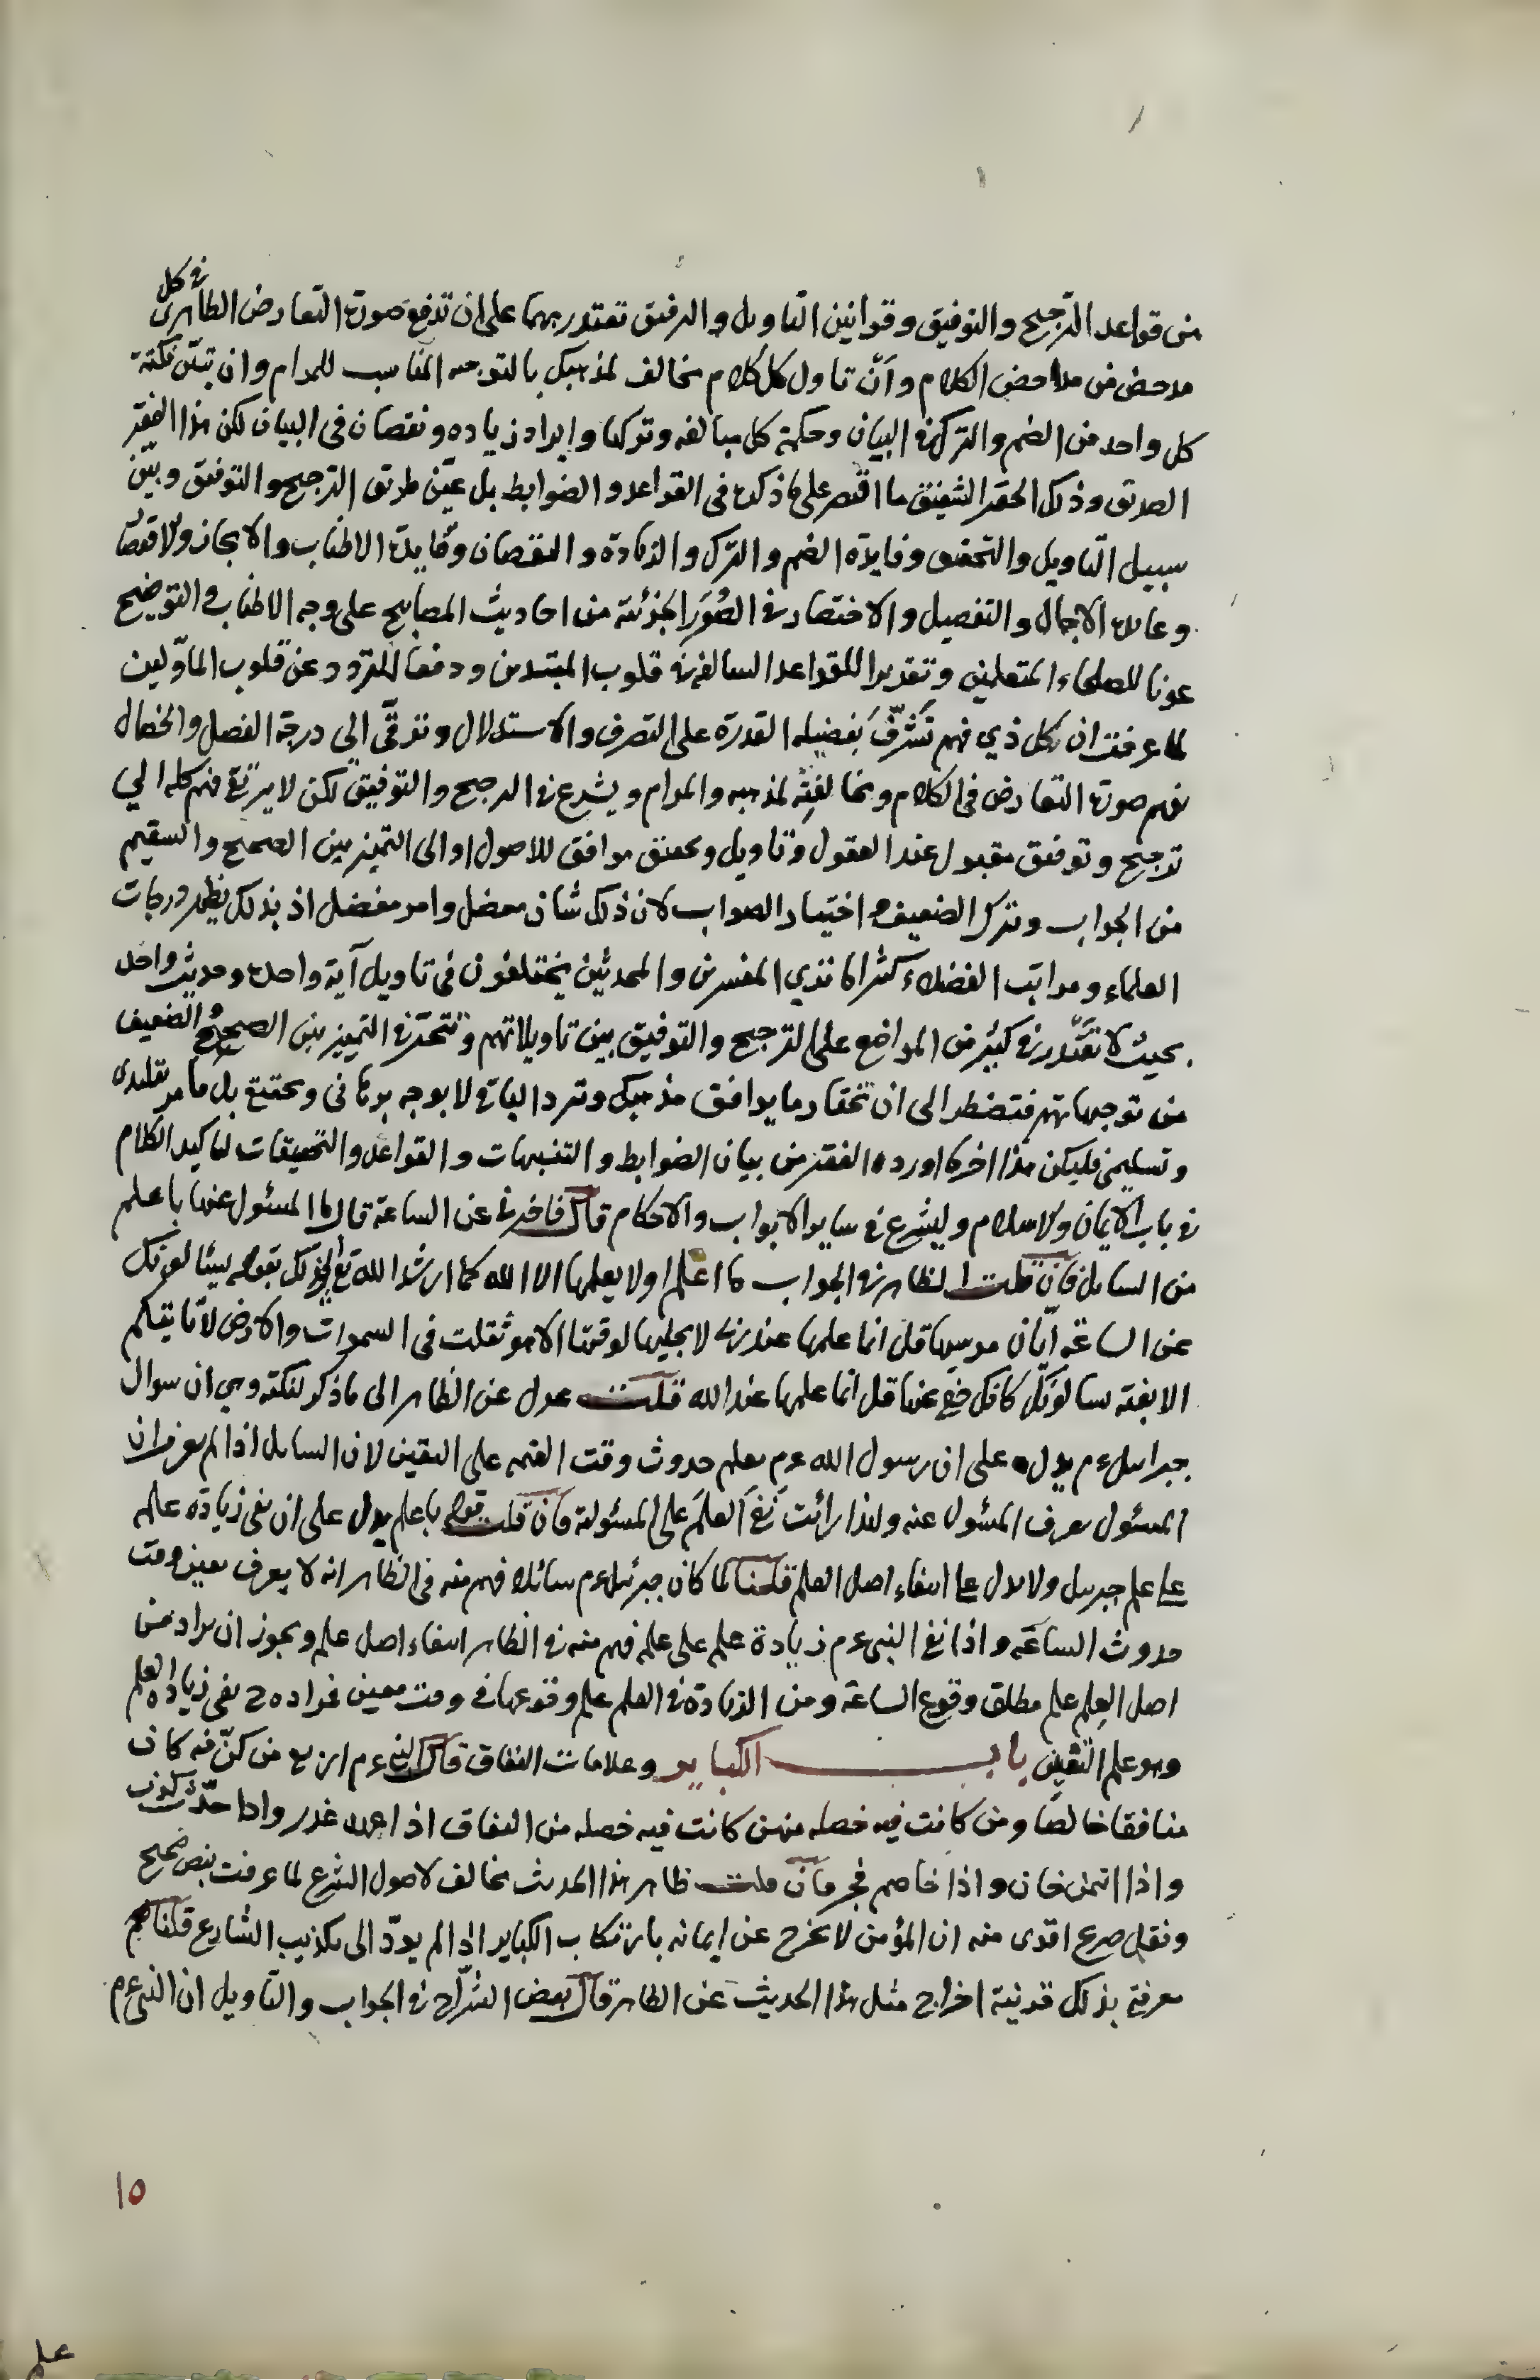 من قواعد الترجيح والتوفيق وقوانين التأويل والدقيق تقتدر بهما على ان تدفع صورة التعارض الظاهرى في كل
مدحض من مداحض الكلام وان تاول كل كلام مخالف لمذهبك بالتوجيه المناسب للمرام وان تبين نكتة
كل واحد من الضم والترك في البيان وحكمة كل مبالغه وتركها وايراد زياده ونقصان فى البيان لكن هذا الفقير
وذلك الحقير الشفيق ما اقتصر على ما ذكره فى القواعد والضوابط بل عين طريق الترجيح والتوفيق وبين
سبيل التاويل والتحقيق وفايدة الضم والترك والزيادة والنقصان وفايدة الاطناب والايجاز والاقتصا
الاجمال والتفصيل والاختصار في الصور الجزئية من احاديث المصابيح على وجه الاطناب والتوضيح
عونا للصلحاء المتعلمين وتقديرا للقواعد السالفة في قلوب المبتدين ودفعا للتردد عن قلوب المأولين
لما عرفت ان كل ذي فهم تشرف بفضيله القدرة على التصرف والاستدلال وترقى الى درجة الفضل والخصال
يفهم صورة التعارض فى الكلام ومخالفته لمذهبه والمرام ويشرع في الترجيح والتوفيق لكن لا يرتقى فهم كله الي
ترجيح وتوفيق مقبول عند العقول وتاويل وتحقيق موافق للاصول او الى التميز بين الصحيح والسقيم
من الجواب وترك الضعيف واختيار الصواب لان ذلك شان معضل وامر مفضل اذ بذلك يظهر درجات
العلماء ومراتب الفضلاء كثيرا ما تري المفسرين والمحدثين يختلفون فى تاويل آية واحدة وحديث واحد
بحيث لا تقتدر في كثير من المواضع على الترجيح والتوفيق بين تاويلاتهم وتتحير في التميز بين الصحيح والضعيف
من توجيهاتهم فتضطر الى ان تختار ما يوافق مذهبك وترد الباقي لا بوجه برهانى وتحقيقي بل بامر تقليدى
وتسليمي فليكن هذا اخر ما اورده الفقير من بيان الضوابط والتنبيهات والقواعد والتحقيقات لتاكيد الكلام
في باب الايمان والاسلام وليشرع في ساير الابواب والاحكام قال فاخبرنى عن الساعة قال ما المسئول عنها باعلم
من السايل فان قلت الظاهر في الجواب ما اعلم او لا يعلمها الا الله كما ارشد الله تع الى ذلك بقوله يسئالونك
عن الساعة ايان مرسيها قل انما علمها عند ربى لا يجليها لوقتها الا هو ثقلت فى السموات والارض لا تاتيكم
الا بغته يسالونك كانك حفي عنها قل انما علمها عند الله قلت عدل عن الظاهر الى ما ذكر لنكتة وهي ان سوال
جبرائيل عم يدل على ان رسول الله عم يعلم حدوث وقت القيمة على اليقين لان السايل اذا لم يعرف ان
المسئول يعرف المسئول عنه ولهذا رائت نفي العلم على المسئولية فان قلت قوله باعلم يدل على ان نفى زيادة علمه
على علم جبريل ولا يدل على انتفاء اصل العلم قلنا لما كان جبرئيل عم سائلا فهم منه فى الظاهر انه لا يعرف تعيين وقت
حدوث الساعة واذا نفى النبى عم زيادة علم على علمه فهم منه في الظاهر انتفاء اصل علم ويجوز ان يراد من
اصل العلم علم مطلق وقوع الساعة ومن الزيادة في العلم علم وقوعها في وقت معين فمراده ح نفى زيادة العلم
وهو علم التعين باب الكباير وعلامات النفاق قال النبي عم اربع من كن فيه كان
منافقا خالصا ومن كانت فيه خصله منهن كانت فيه خصله من النفاق اذا عهد غدر واذا حدث كذب
واذا ائتمن خان واذا خاصم فجر فان قلت ظاهر هذا الحديث مخالف لاصول الشرع لما عرفت بنص صحيح
ونقل صريح اقوى منه ان المؤمن لا يخرج عن ايمانه بارتكاب الكباير اذا لم يودّ الى تكذيب الشارع قلنا نعم
معرفة بذلك قرينة اخراج مثل هذا الحديث عن الظاهر قال بعض الشراح في الجواب والتاويل ان النبى عم
١٥
على